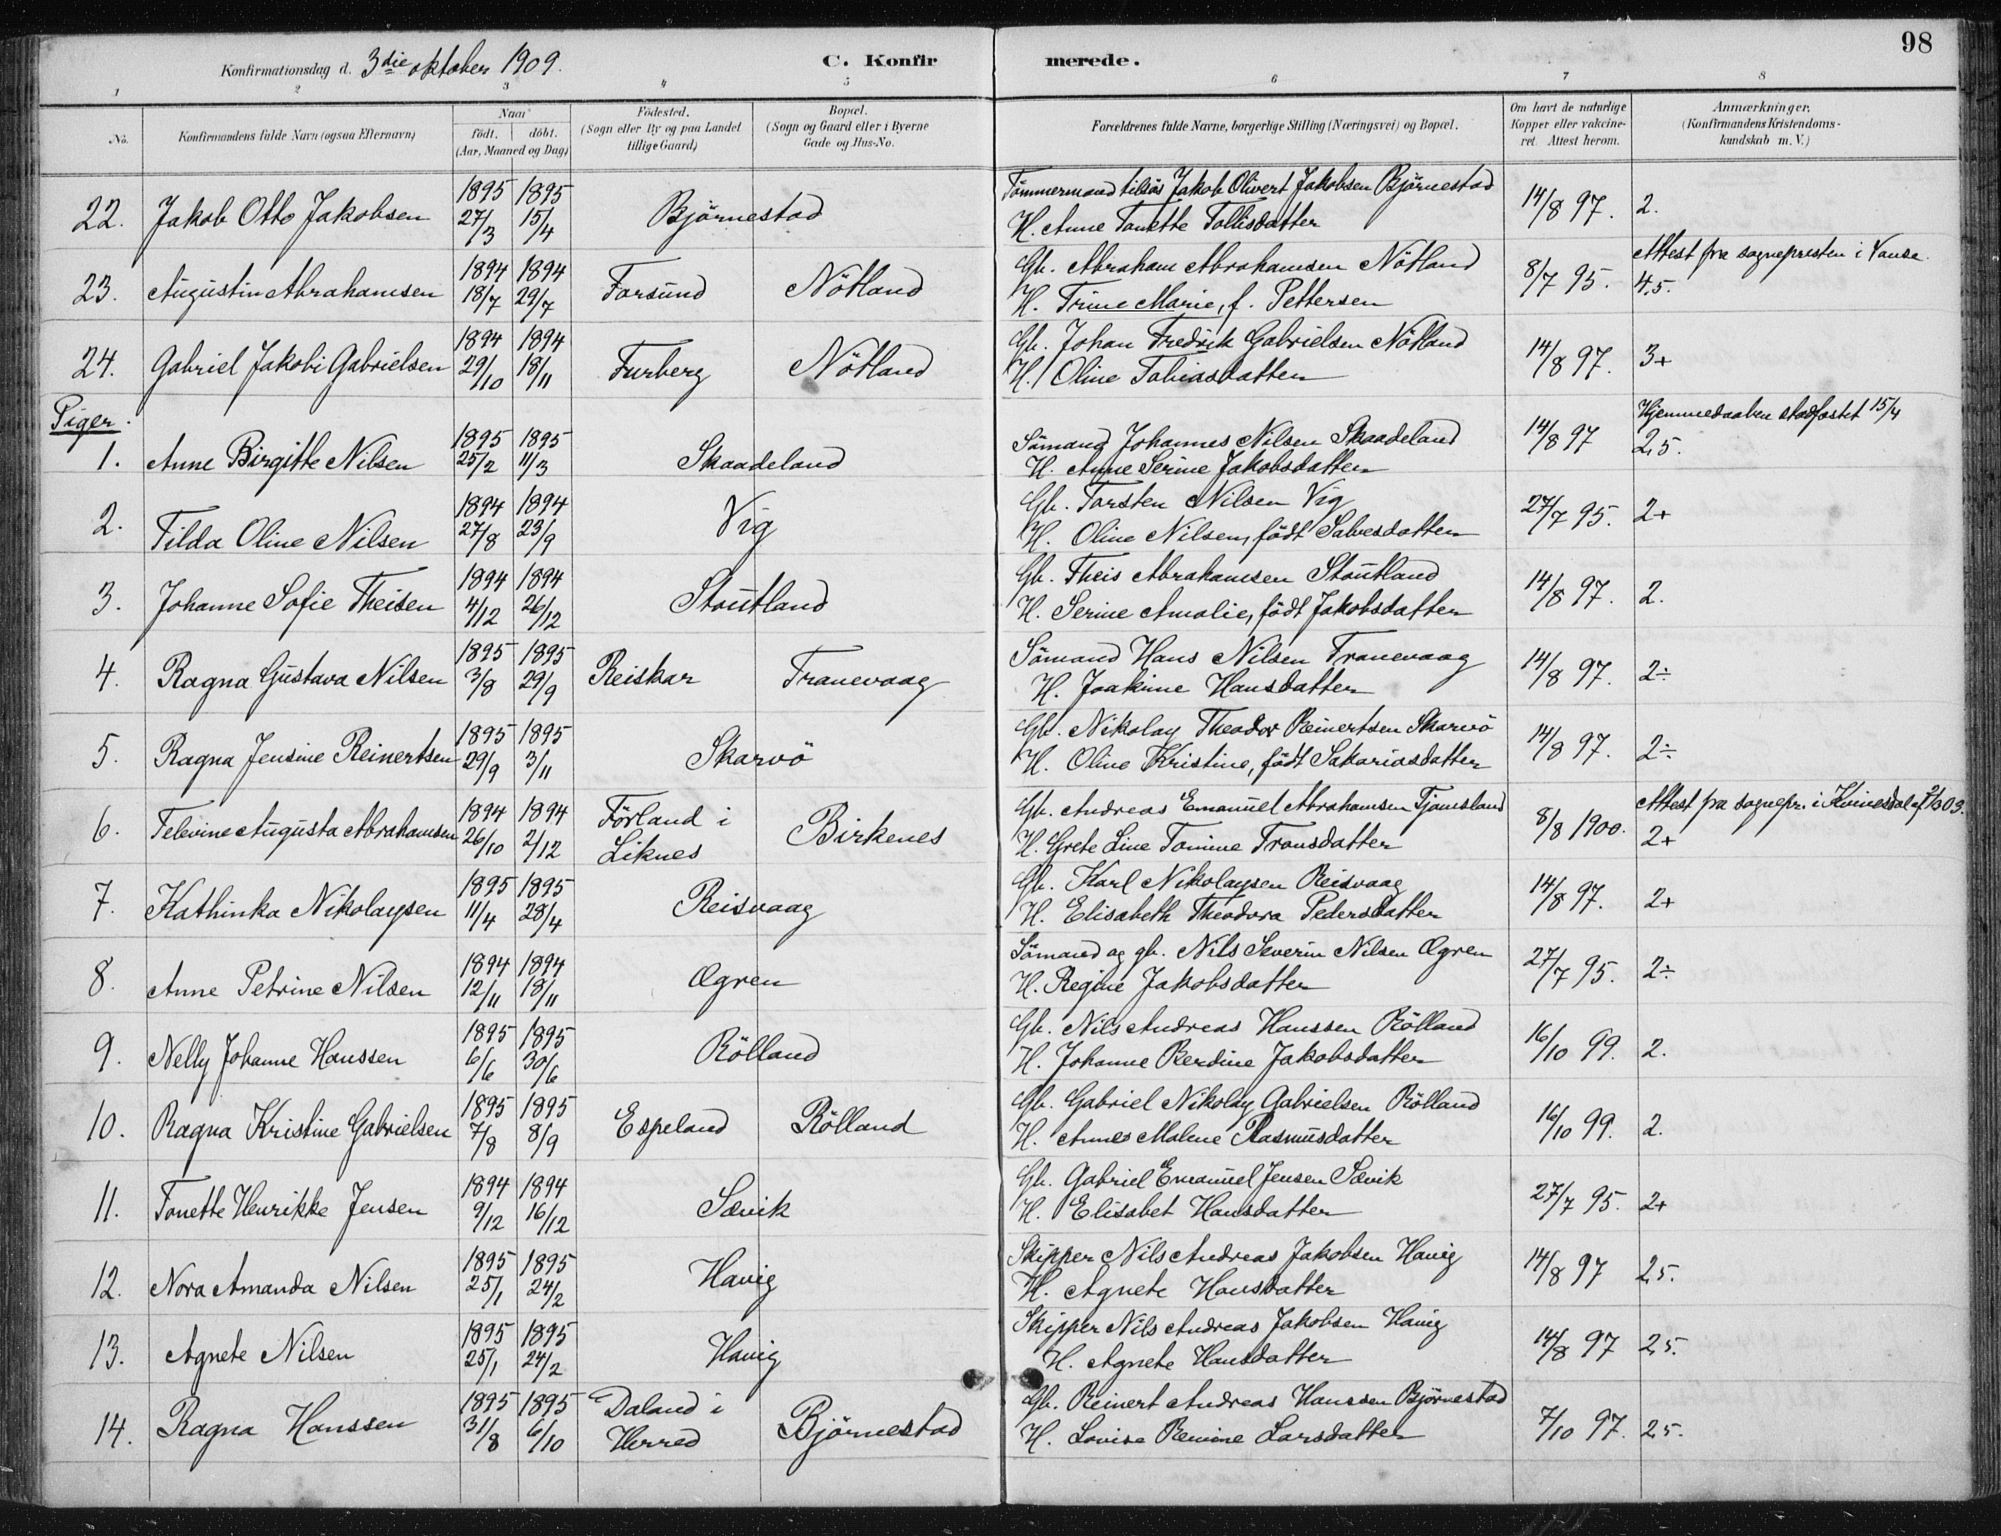 98
Konfirmationsdag d. 3die oktober 1909. C. Konfirmerede.
1 2 3 4 5 6 7 8
No. Konfirmandens fulde Navn (ogsaa Efternavn) Naar født. døbt. (Aar, Maaned og Dag) Fødested. (Sogn eller By og paa Landet tillige Gaard) Bopæl. (Sogn og Gaard eller i Byerne Gade og Hus-No. Forældrenes fulde Navne, borgerlige Stilling (Næringsvei) og Bopæl. Om havt de naturlige Kopper eller vakcineret. Attest herom. Anmærkninger. (Konfirmandens Kristendomskundskab m. V.)
22. Jakob Otto Jakobsen 1895 27/3 1895 15/4 Bjørnestad Tömmermand tilsös Jakob Olivert Jakobsen Bjørnestad 14/8 97. 2.
H. Anne Tonette Tollisdatter
23. Augustin Abrahamsen 1894 18/7 1894 29/7 Farsund Nötland Gb. Abraham Abrahamsen Nötland 8/7 95. Attest fra sognepresten i Vanse. 4,5.
H. Trine Marie, f. Pettersen
24. Gabriel Jakobi Gabrielsen 1894 29/10 1894 18/11 Furberg Nötland Gb. Johan Fredrik Gabrielsen Nötland 14/8 97. 3+
H. Oline Tobiasdatter
Piger.
1. Anne Birgitte Nilsen 1895 25/2 1895 11/3 Skaadeland Sömand Johannes Nilsen Skaadeland 14/8 97 Hjemmedaaben stadfæstet 15/4 2,5.
H. Anne Serine Jakobsdatter
2. Tilda Oline Nilsen 1894 27/8 1894 23/9 Vig Gb. Torsten Nilsen Vig 27/7 95. 2+
H. Oline Nilsen, född Salvesdatter
3. Johanne Sofie Theisen 1894 4/12 1894 26/12 Stoutland Gb. Theis Abrahamsen Stoutland 14/8 97. 2.
H. Serine Amalie, född Jakobsdatter
4. Ragna Gustava Nilsen 1895 3/8 1895 29/9 Reiskar Tranevaag Sömand Hans Nilsen Tranevaag 14/8 97. 2÷
H. Joakime Hansdatter
5. Ragna Jensine Reinertsen 1895 29/9 1895 3/11 Skarvö Gb. Nikolay Theodor Reinertsen Skarvö 14/8 97. 2÷
H. Oline Kristine, född Sakariasdatter
6. Televine Augusta Abrahamsen 1894 26/10 1894 2/12 Förland i Liknes Birkenes Gb. Andreas Emanuel Abrahamsen Tjomsland 8/8 1900. Attest fra sognepr. i Kvinesdal 2+
H. Grete Line Tomine Tronsdatter
7. Kathinka Nikolaysen 1895 11/4 1895 28/4 Reisvaag Gb. Karl Nikolaysen Reisvaag 14/8 97. 2+
H. Elisabeth Theodora Pedersdatter
8. Anne Petrine Nilsen 1894 12/11 1894 18/11 Øgren Sömand og gb. Nils Severin Nilsen Øgren 27/7 95. 2÷
H. Regine Jakobsdatter
9. Nelly Johanne Hanssen 1895 6/6 1895 30/6 Rölland Gb. Nils Andreas Hanssen Rölland 16/10 99. 2.
H. Johanne Berdine Jakobsdatter
10. Ragna Kristine Gabrielsen 1895 7/8 1895 8/9 Espeland Rölland Gb. Gabriel Nikolay Gabrielsen Rölland 16/10 99. 2.
H. Anne Malene Rasmusdatter
11. Tonette Henrikke Jensen 1894 9/12 1894 16/12 Sævik Gb. Gabriel Emanuel Jensen Sævik 27/7 95. 2+
H. Elisabet Hansdatter
12. Nora Amanda Nilsen 1895 25/1 1895 24/2 Havig Skipper Nils Andreas Jakobsen Havig 14/8 97 2,5.
H. Agnete Hansdatter
13. Agnete Nilsen 1895 25/1 1895 24/2 Havig Skipper Nils Andreas Jakobsen Havig 14/8 97 2,5.
H. Agnete Hansdatter
14. Ragna Hanssen 1895 31/8 1895 6/10 Daland i Herred Bjørnestad Gb. Reinert Andreas Hanssen Bjørnestad 7/10 97. 2,5.
H. Lovise Larsdatter